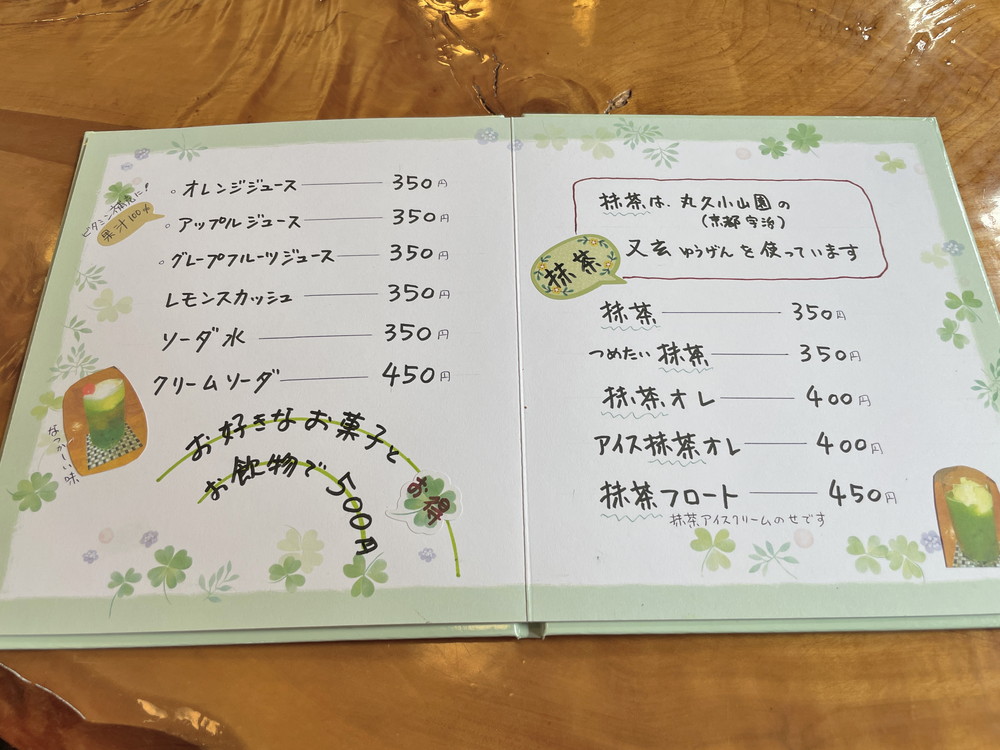 ビタミン補充に!
果汁100%
。オレンジジュース 350円
。アップルジュース 350円
。グレープフルーツジュース 350円
レモンスカッシュ 350円
ソーダ水 350円
クリームソーダ 450円
なつかしい味
お好きなお菓子と
お飲物で500円
お得
抹茶は、丸久小山園の
(京都宇治)
又玄 ゆうげん を使っています
抹茶
抹茶 350円
つめたい抹茶 350円
抹茶オレ 400円
アイス抹茶オレ 400円
抹茶フロート 450円
抹茶アイスクリームのせです